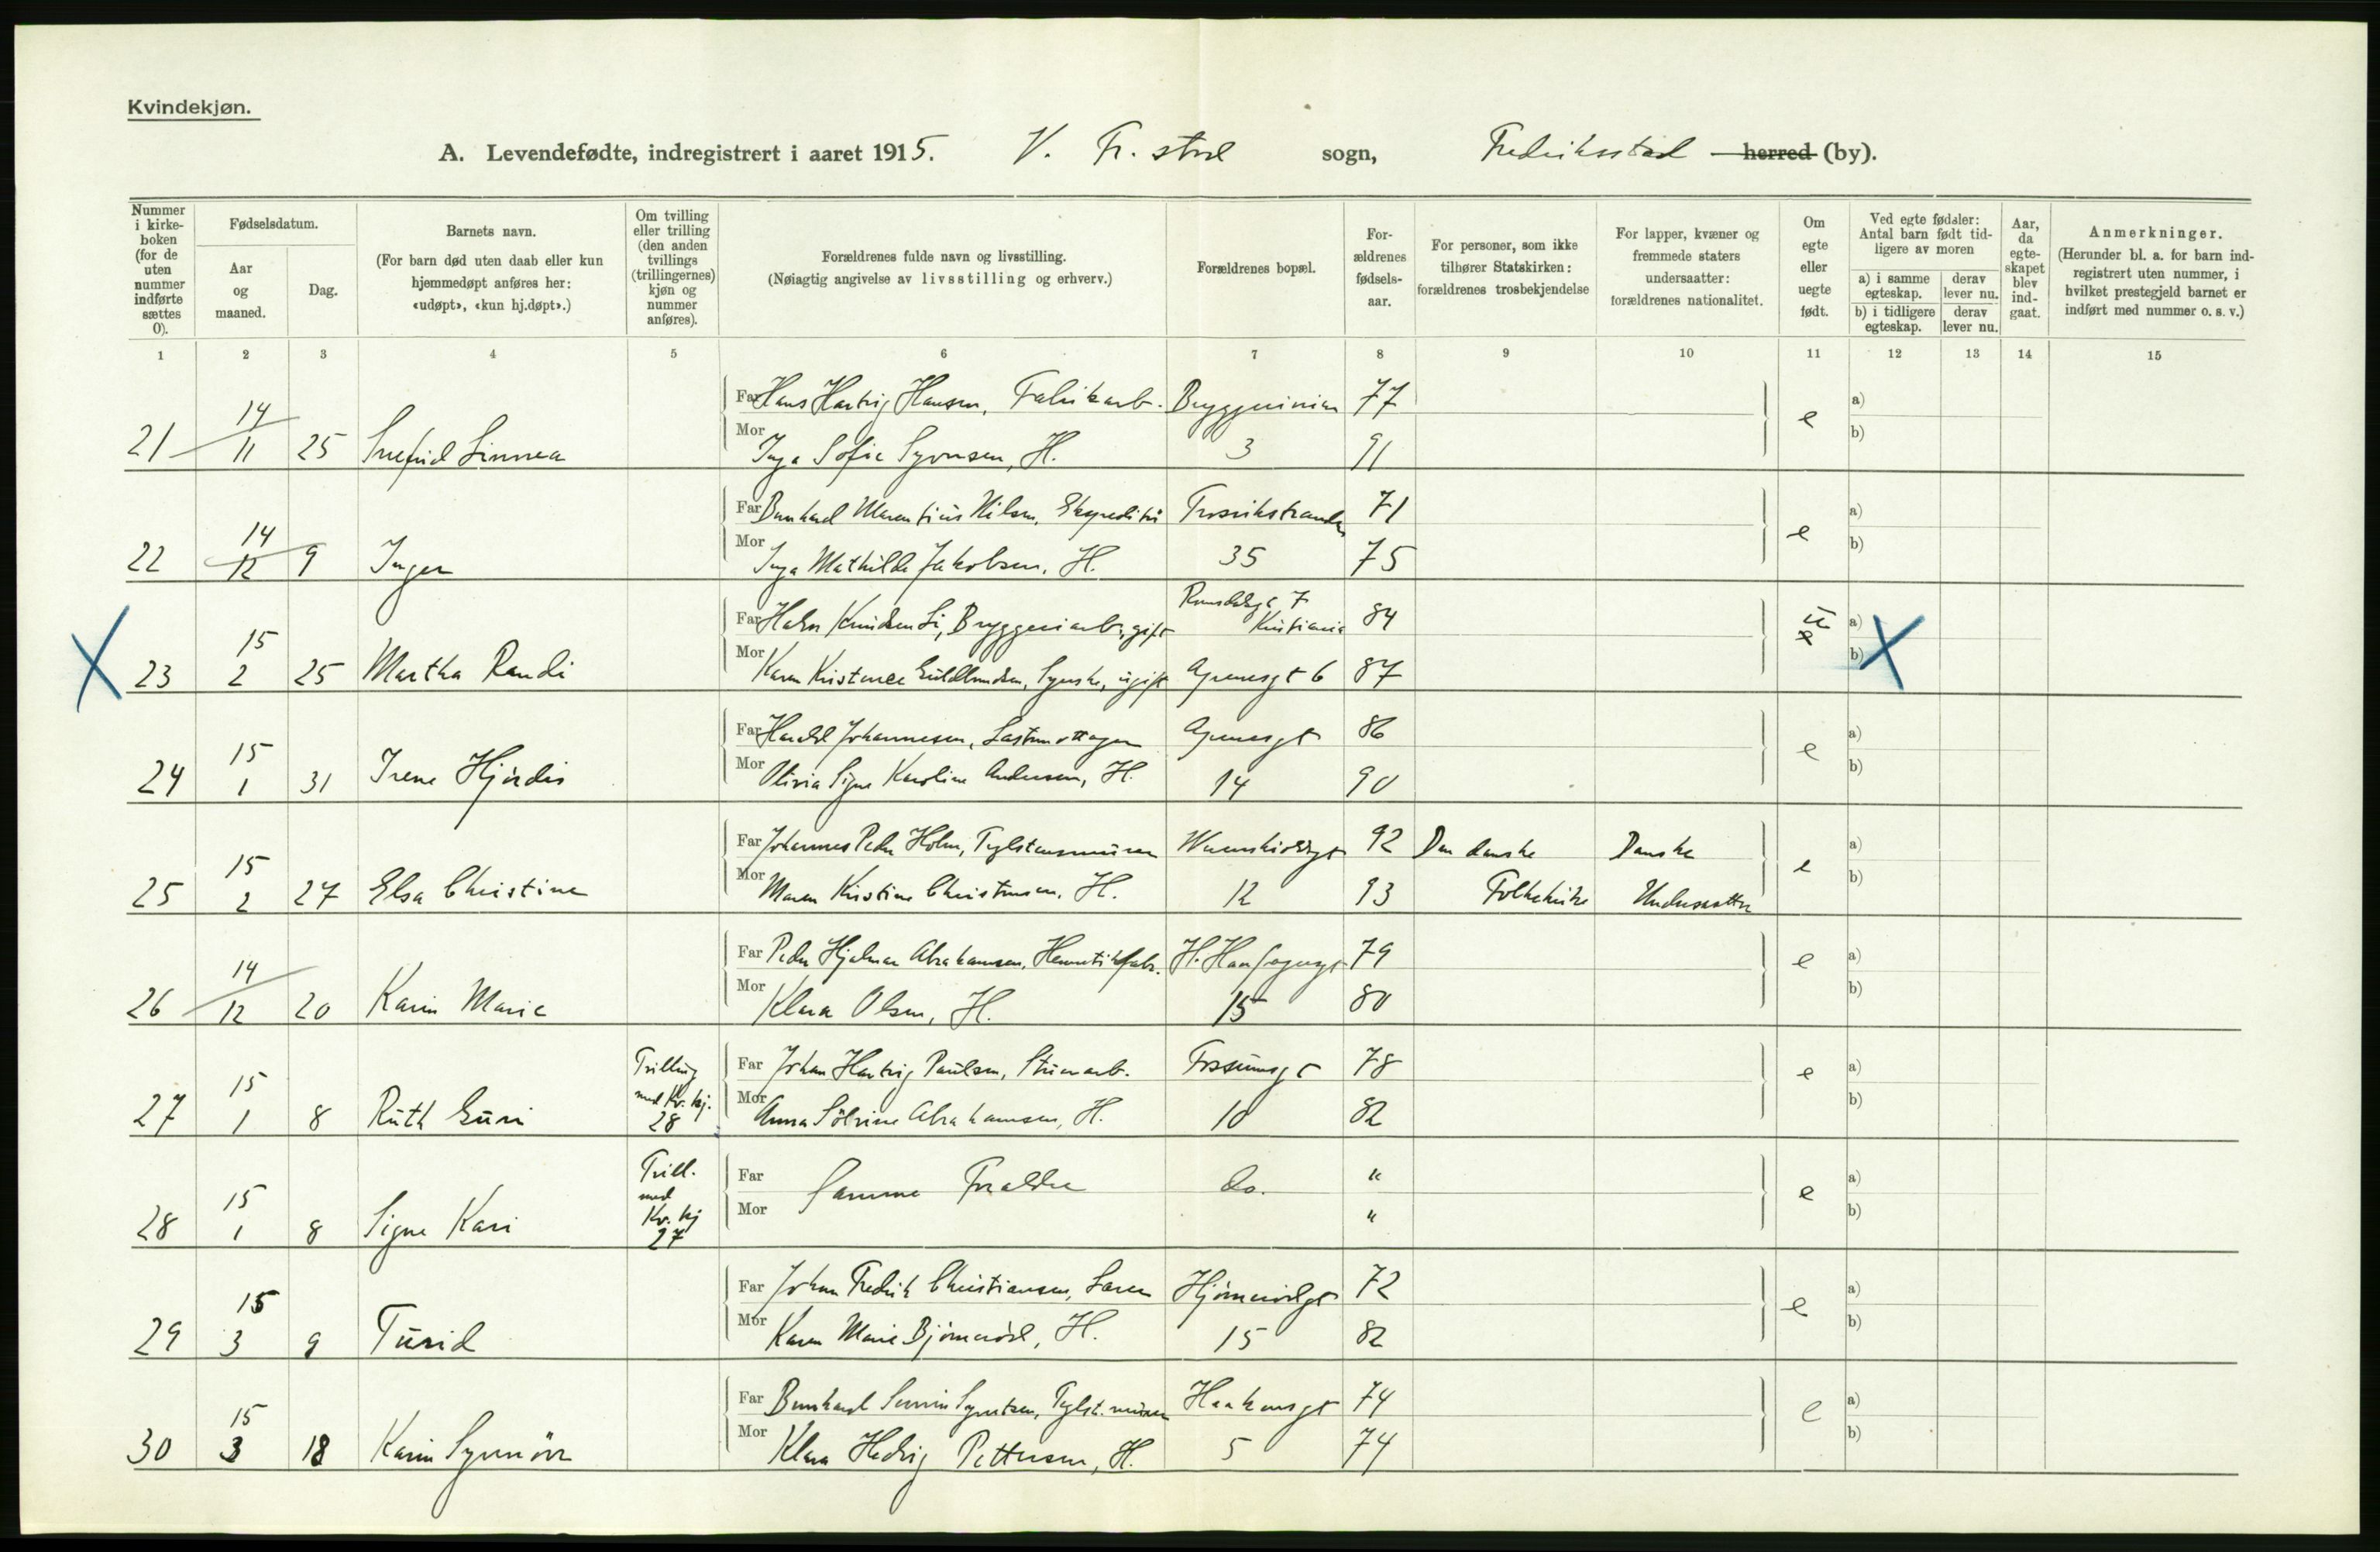 Kvindekjøn.
A. Levendefødte, indregistrert i aaret 1915. V. Fr.stad sogn, Fredriksstad herred (by).
Nummer i kirkeboken (for de uten nummer indførte sættes 0).
Fødselsdatum.
Aar og maaned.
Dag.
Barnets navn.
(For barn død uten daab eller kun hjemmedøpt anføres her: «udøpt», «kun hj.døpt».)
Om tvilling eller trilling (den anden tvillings (trillingernes) kjøn og nummer anføres).
Forældrenes fulde navn og livsstilling.
(Nøiagtig angivelse av livsstilling og erhverv.)
Forældrenes bopæl.
Forældrenes fødselsaar.
For personer, som ikke tilhører Statskirken: forældrenes trosbekjendelse
For lapper, kvæner og fremmede staters undersaatter: forældrenes nationalitet.
Om egte eller uegte født.
Ved egte fødsler: Antal barn født tidligere av moren
a) i samme egteskap.
derav lever nu.
b) i tidligere egteskap.
derav lever nu.
Aar, da egteskapet blev indgaat.
Anmerkninger.
(Herunder bl. a. for barn indregistrert uten nummer, i hvilket prestegjeld barnet er indført med nummer o. s. v.)
1 2 3 4 5 6 7 8 9 10 11 12 13 14 15
Far Hans Hartvig Hansen, Fabrikarb. 77
21 14/11 25 Linnea Mor Inga Sofie H. 3 91 e a) b)
Far Marentius Nilsen, Ekspeditør Trosvikstranden 71
22 14/12 9 Inger Mor Inga Mathilde Jakobsen, H. 35 75 e a) b)
Romsdalsgt 7
Far Knudsen Li, Bryggeriarb., gift Kristiania 84
X 23 15 2 25 Martha Randi Mor Karen Syerske, ugift Agnesgt 6 87 u e a) b) X
Far Harald Johannesen, Agnesgt 86
24 15 1 31 Irene Hjördis Mor Olivia Signe Karoline Andersen, H. 14 90 e a) b)
Far Johannes Peder Holm, Teglstensmurer 92 Den danske Danske
25 15 2 27 Elsa Christine Mor Maren Kristine Christensen, H. 12 93 Folkekirke Undersaatter e a) b)
Far Peder Hjalmar Abrahamsen, Hermetikfabr. 79
26 14/12 20 Karin Marie Mor Klara Olsen, H. 15 80 e a) b)
Trilling Far Johan Hartvig Paulsen, Fossumsgt 78
med Kv. kj.
27 15 1 8 Ruth Guri 28 Mor Anna Sölvine Abrahamsen, H. 10 82 e a) b)
Trill. Far Samme Foraldre do. "
med
28 15 1 8 Signe Kari Kv. kj 27 Mor " e a) b)
Far Johan Fredrik Christiansen, 72
29 15 3 9 Turid Mor Karen Marie Björneröd, H. 15 82 e a) b)
Far Bernhard Teglst.murer Haakonsgt 74
30 15 3 18 Karin Synnöve Mor Klara Hedvig Pettersen, H. 5 74 e a) b)